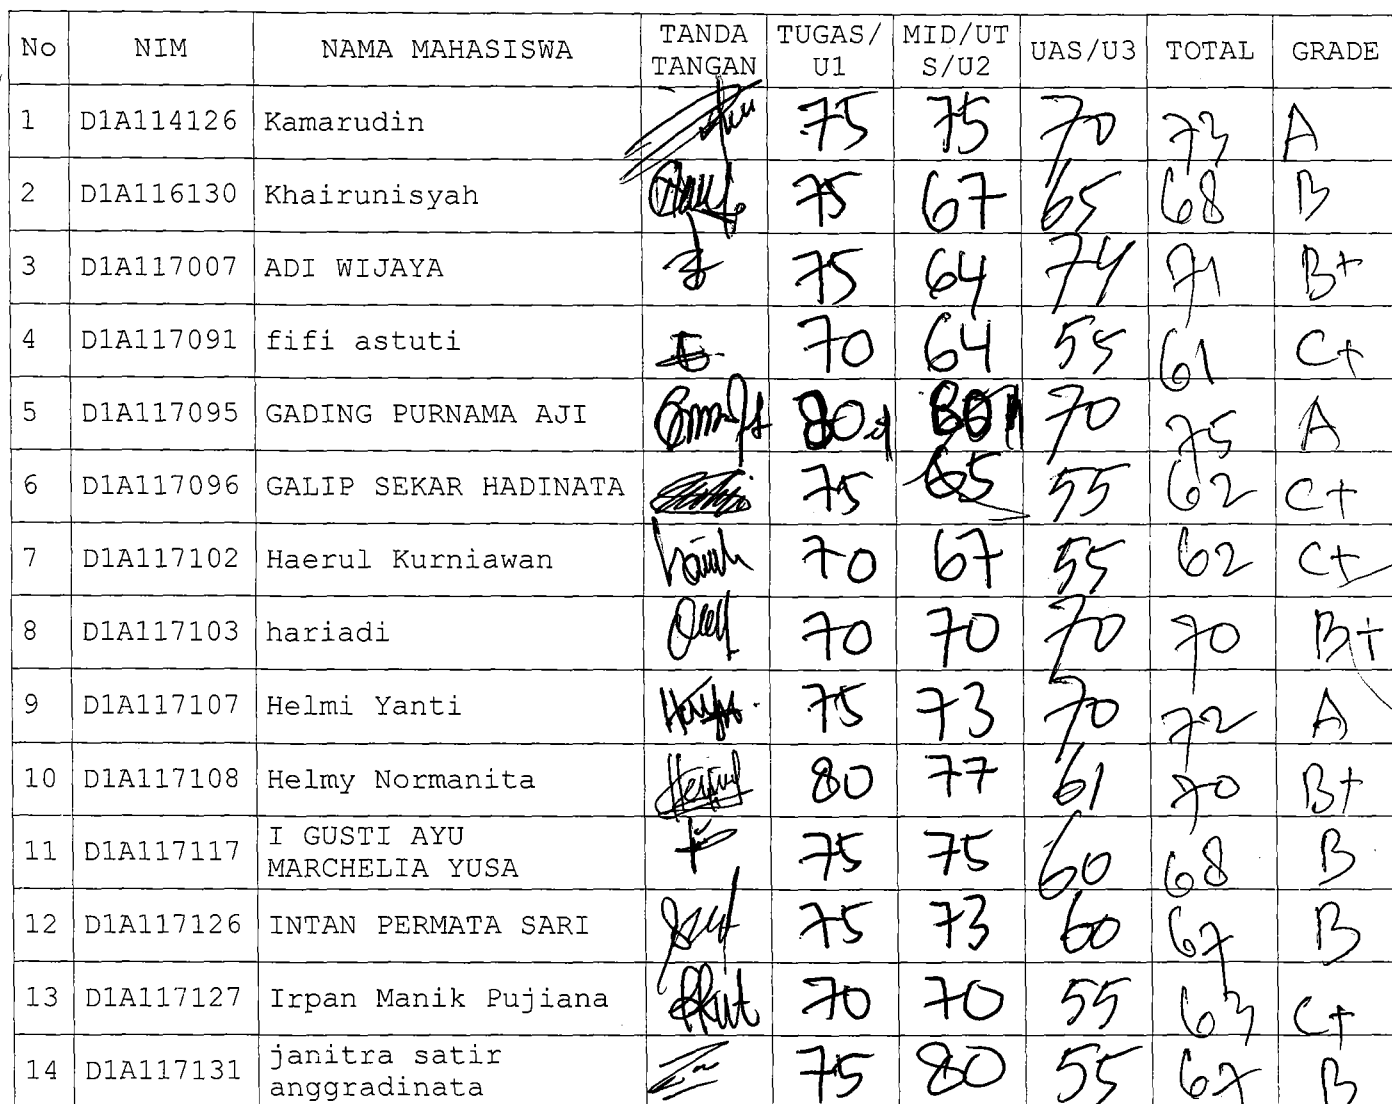 No NIM NAMA MAHASISWA TANDA TANGAN TUGAS/U1 MID/UTS/U2 UAS/U3 TOTAL GRADE
1 D1A114126 Kamarudin 75 75 70 73 A
2 D1A116130 Khairunisyah 75 67 65 68 B
3 D1A117007 ADI WIJAYA 75 64 74 71 B+
4 D1A117091 fifi astuti 70 64 55 61 C+
5 D1A117095 GADING PURNAMA AJI 80 80 70 75 A
6 D1A117096 GALIP SEKAR HADINATA 75 65 55 62 C+
7 D1A117102 Haerul Kurniawan 70 67 55 62 C+
8 D1A117103 hariadi 70 70 70 70 B+
9 D1A117107 Helmi Yanti 75 73 70 72 A
10 D1A117108 Helmy Normanita 80 77 61 70 B+
11 D1A117117 I GUSTI AYU MARCHELIA YUSA 75 75 60 68 B
12 D1A117126 INTAN PERMATA SARI 75 73 60 67 B
13 D1A117127 Irpan Manik Pujiana 70 70 55 63 C+
14 D1A117131 janitra satir anggradinata 75 80 55 67 B